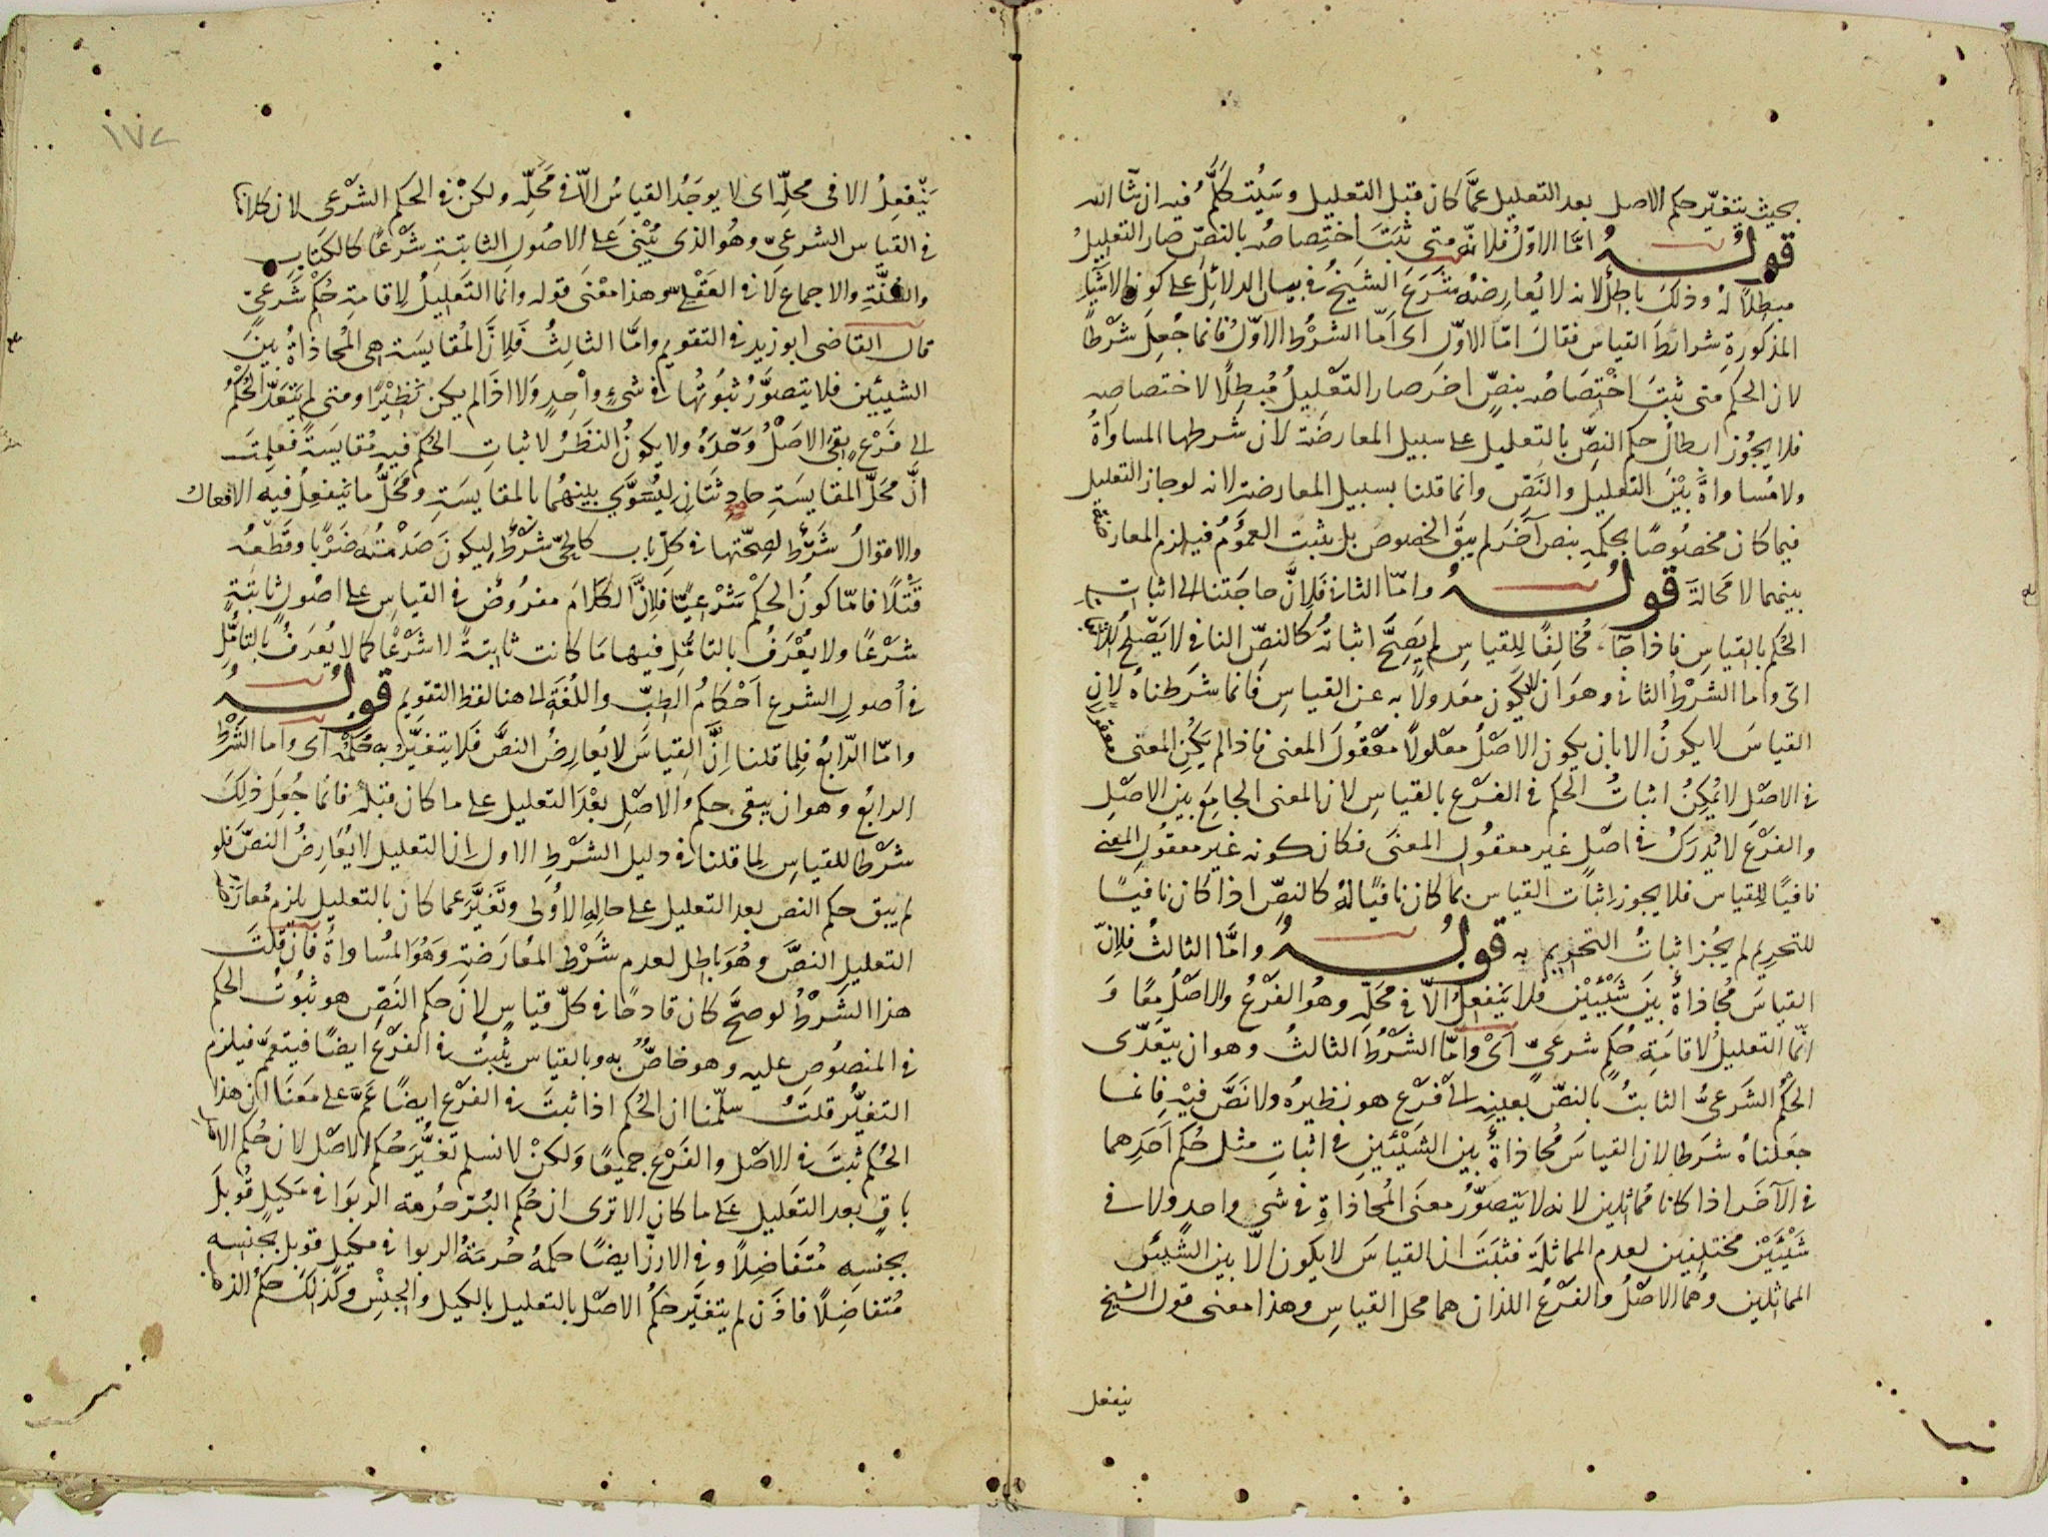 بحيث يتغيّر حكم الاصل بعد التعليل عمّا كان قبل التعليل وسيُتكلّم فيه ان شآ الله
قولــه امّا الاوّل فلانّه متى ثبت اختصاصه بالنصّ صار التعليل
مبطلًا له وذلك باطل لانه لا يُعارضه شرع الشيخ في بيان الدلائل على كون الاشيآ
المذكورة شرائط القياس فقال امّا الاوّل اى امّا الشرط الاوّل فانما جُعل شرطًا
لان الحكم متى ثبت اختصاصه بنصّ اخر صار التعليل مُبطلًا لاختصاصه
فلا يجوز ابطال حكم النصّ بالتعليل على سبيل المعارضة لان شرطها المساواة
ولا مُساواة بين التعليل والنصّ وانما قلنا بسبيل المعارضة لانه لو جاز التعليل
فيما كان مخصوصًا بحكمه بنص آخر لم يبق الخصوص بل يثبت العموم فيلزم المعارضة
بينهما لا محالة قولــه وامّا الثانى فلانّ حاجتنا الى اثبات
الحكم بالقياس فاذا جآء مُخالفًا للقياس لم يصحّ اثباته كالنصّ النافى لا يصلح للاثبات
اى واما الشرط الثانى وهو ان لا يكون معدولًا به عن القياس فانما شرطناه لان
القياس لا يكون الا بان يكون الاصل معلولًا معقول المعنى فاذا لم يكن المعنى معقولا
في الاصل لا يُمكن اثبات الحكم في الفرع بالقياس لان المعنى الجامع بين الاصل
والفرع لا يُدرك في اصل غير معقول المعنى فكان كونه غير معقول المعنى
نافيًا للقياس فلا يجوز اثبات القياس بما كان نافيًا له كالنصّ اذا كان نافيًا
للتحريم لم يجُز اثبات التحريم به قولــه وامّا الثالث فلانّ
القياس مُحاذاة بين شيئين فلا ينفعل الّا في محلّه وهو الفرع والاصل معًا و
انّما التعليل لاقامة حُكم شرعىّ اى وامّا الشرط الثالث وهو ان يتعدّى
الحكم الشرعىّ الثابت بالنصّ بعينه الى فرع هو نظيره ولا نصّ فيه فانما
جعلناه شرطا لان القياس مُحاذاة بين الشيئين في اثبات مثل حُكم احدهما
في الآخر اذا كانا مُماثلين لانه لا يتصوّر معنى المُحاذاة في شى واحد ولا في
شيئين مختلفين لعدم المماثلة فثبت ان القياس لا يكون الّا بين الشيئين
المماثلين وهما الاصل والفرع اللذان هما محل القياس وهذا معنى قول الشيخ
ينفعل
١٧٤
ينفعل الا فى محلّه اى لا يوجد القياس الّا فى محلّه ولكن في الحكم الشرعى لان كلامنا
في القياس الشرعىّ وهو الذى يُبنى على الاصول الثابتة شرعًا كالكتاب
والسُنّة والاجماع لا في العقلى وهذا معنى قوله وانما التعليل لاقامة حكم شرعىّ
قال القاضى ابو زيد في التقويم وامّا الثالث فلانّ المُقايسة هى المُحاذاة بين
الشيئين فلا يتصوّر ثبوتها في شىء واحد ولا اذا لم يكن نظيرًا ومتى لم يتعدّ الحكم
الى فرع بقى الاصل وحده ولا يكون النظر لاثبات الحكم فيه مُقايسة فعلمت
انّ محلّ المقايسة حادثتان ليُسوّى بينهما بالمقايسة ومحلّ ما ينفعل فيه الافعال
والاقوال شرط لصحّتها في كلّ باب كالحىّ شرط ليكون صدمته ضربًا وقطعه
قتلًا فامّا كون الحكم شرعيًّا فلانّ الكلام مفروض في القياس على اصول ثابتة
شرعًا ولا يُعرف بالتامّل فيها ما كانت ثابتة لا شرعًا كما لا يُعرف بالتامّل
في اصول الشرع احكام الطبّ واللغة الى هنا لفظ التقويم قولــه
وامّا الرّابع فلما قلنا انّ القياس لا يُعارض النصّ فلا يتغيّر به حُكمه اى واما الشرط
الرابع وهو ان يبقى حكم الاصل بعد التعليل على ما كان قبله فانما جُعل ذلك
شرطا للقياس لما قلنا في دليل الشرط الاول ان التعليل لا يُعارض النصّ فلو
لم يبق حكم النص بعد التعليل على حاله الاولى وتغيّر عما كان بالتعليل يلزم مُعارضة
التعليل النصّ وهو باطل لعدم شرط المُعارضة وهو المُساواة فان قلت
هذا الشرط لو صحّ كان قادحًا في كلّ قياس لانّ حكم النصّ هو ثبوت الحكم
في المنصوص عليه وهو خاصّ به وبالقياس يثبت في الفرع ايضًا فيتعمّم فيلزم
التغيّر قلت سلّمنا ان الحكم اذا ثبت في الفرع ايضًا عمّ على معنا ان هذا
الحكم ثبت في الاصل والفرع جميعًا ولكن لا نسلم تغيّر حُكم الاصل لان حُكم الاصل
باق بعد التعليل على ما كان الا ترى ان حُكم البُرّ حُرمة الربوا في مكيل قُوبل
بجنسه مُتفاضلًا وفي الارز ايضًا حكمه حُرمة الربوا في مكيل قوبل بجنسه
مُتفاضلًا فاذن لم يتغيّر حكم الاصل بالتعليل بالكيل والجنس وكذلك حكم الذى